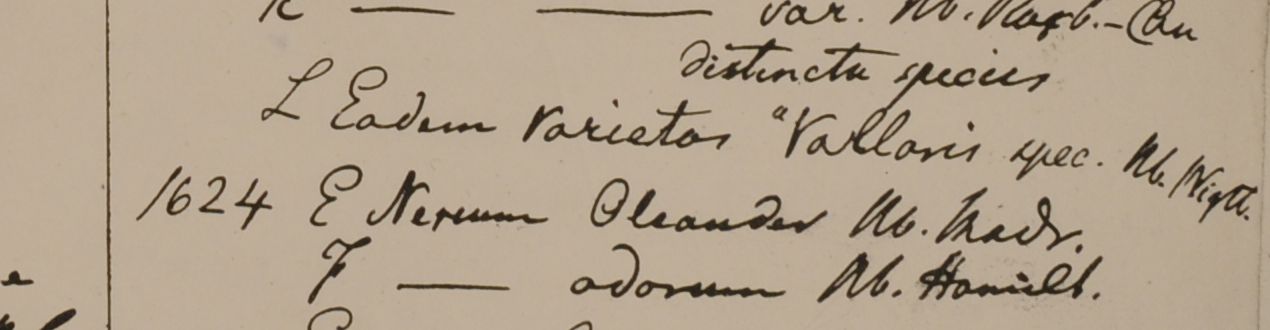 K — — var. Hb. Roxb. - (an
distincta species
L Eadem varietas "Vallaris spec. Hb. Wight.
1624 E Nerium Oleander Hb. Madr.
F — odorum Hb. Hamilt.